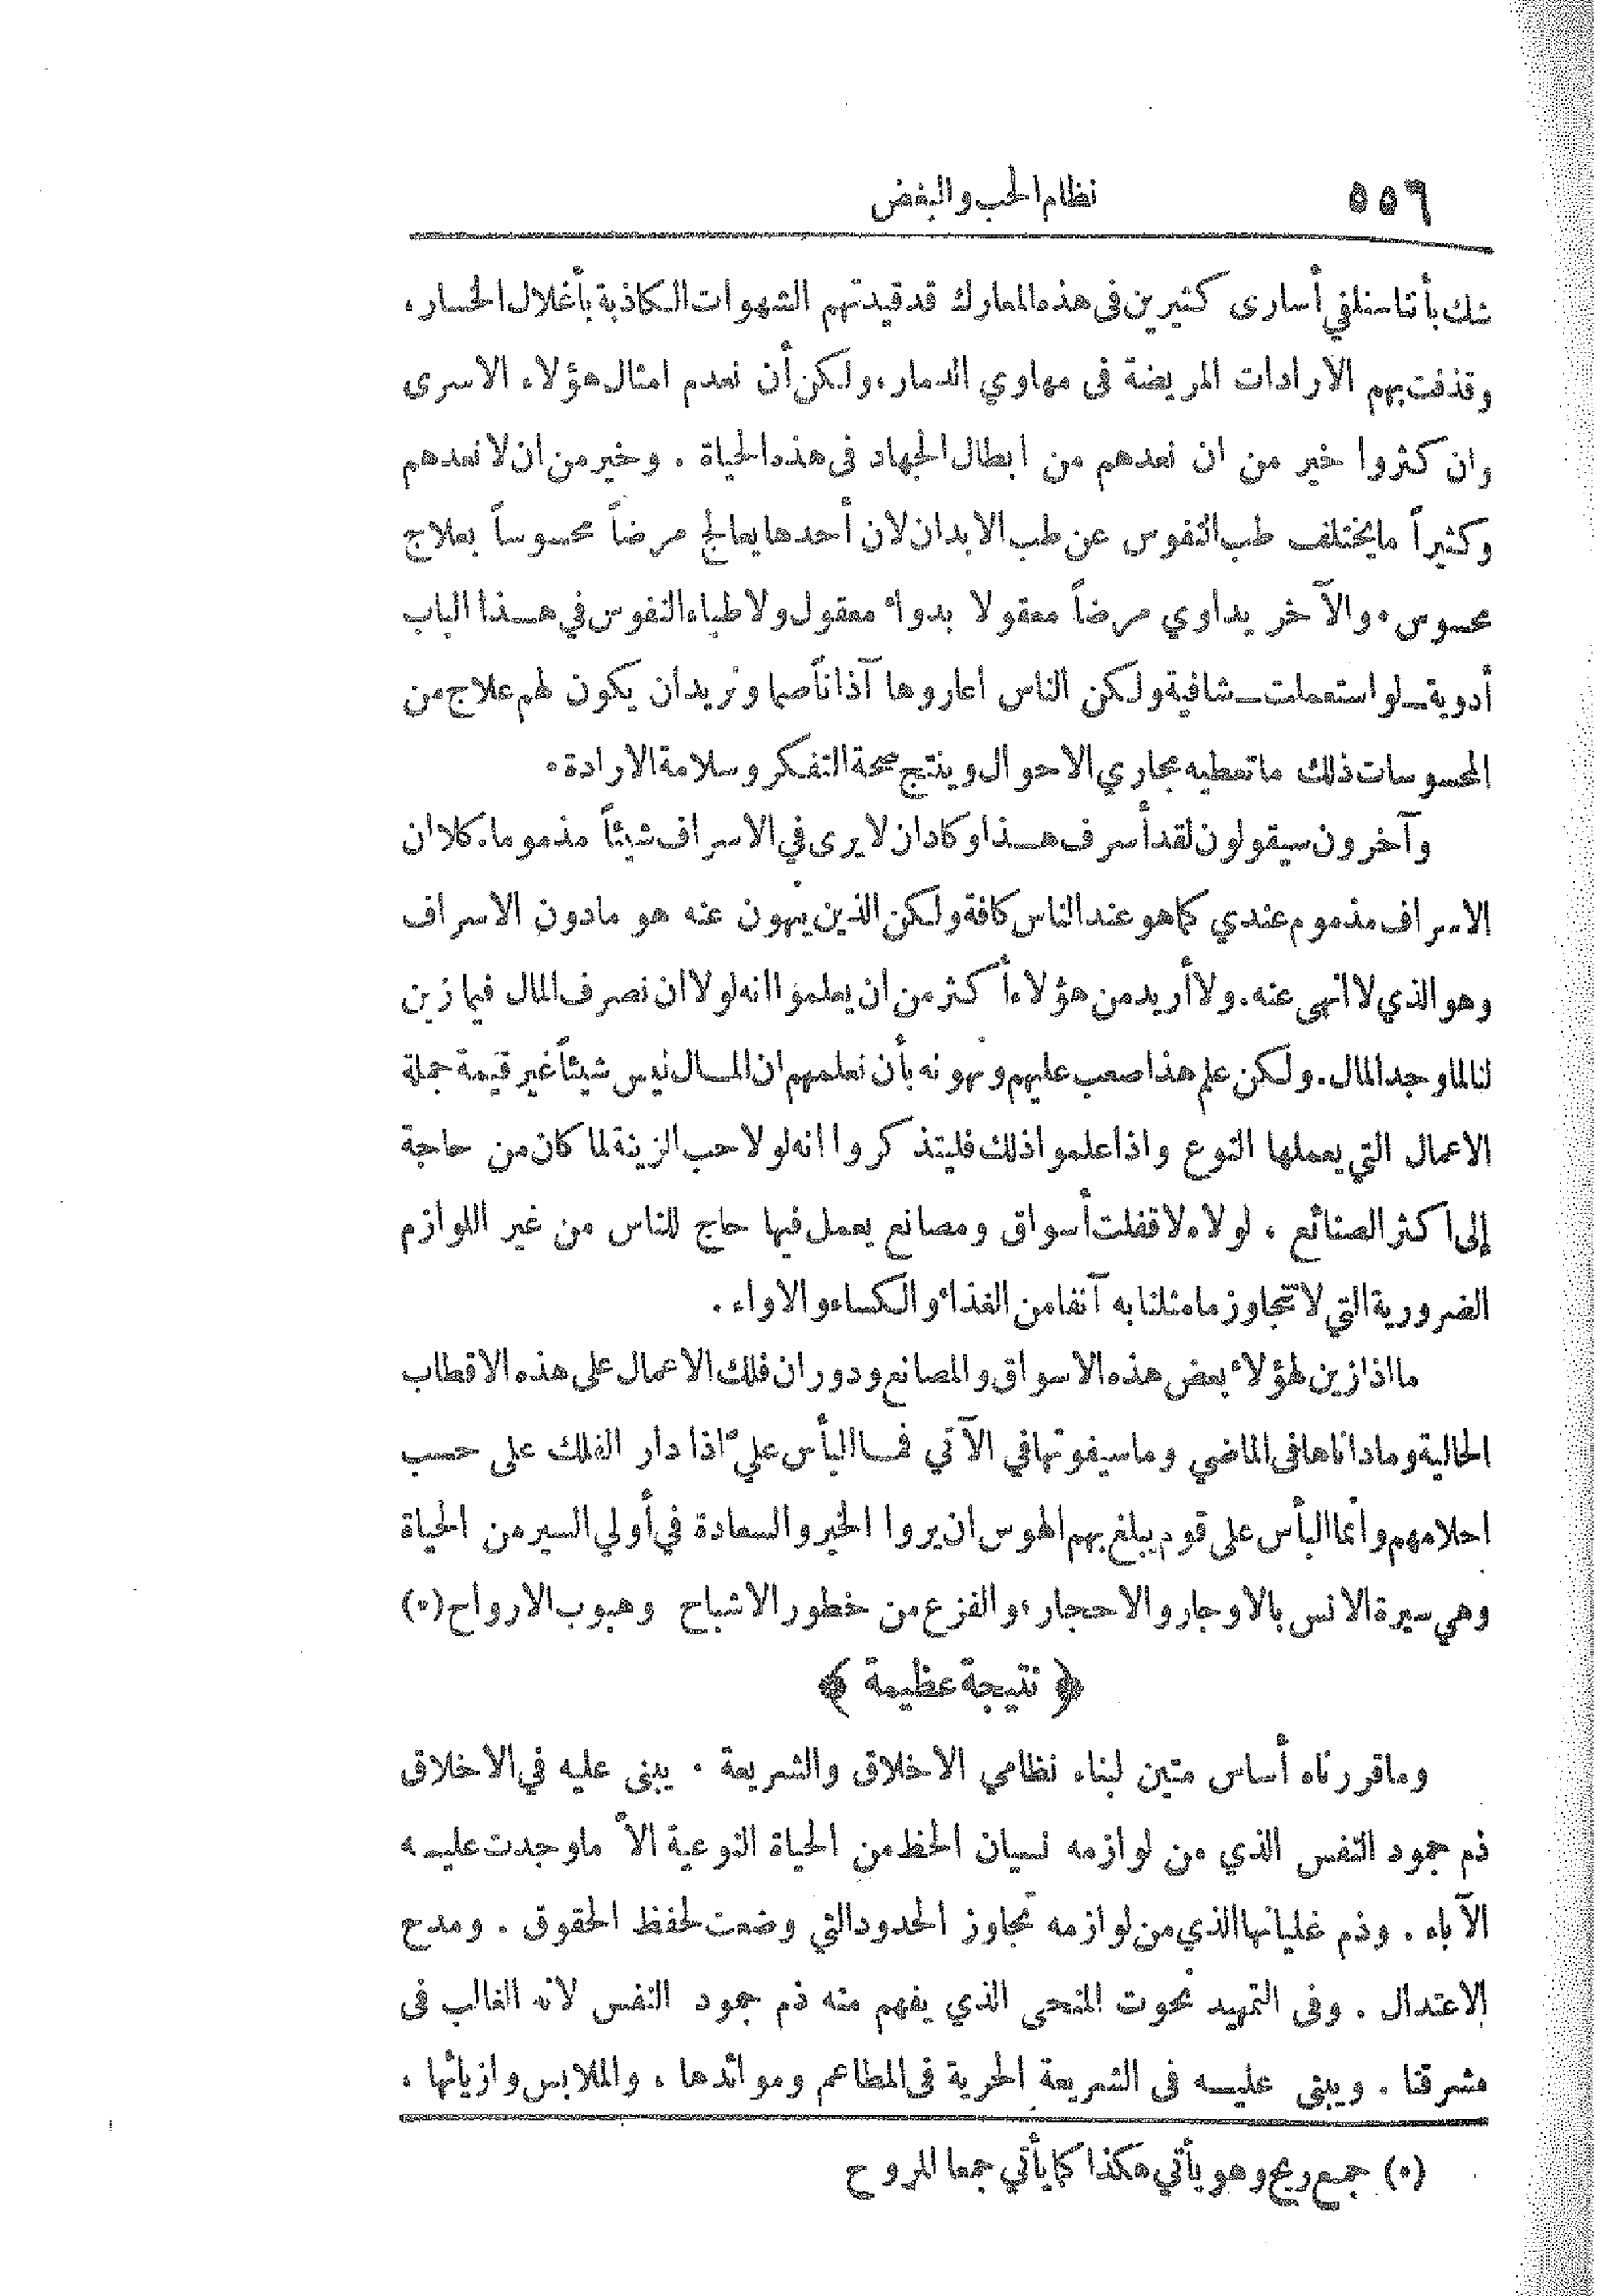 ٥٥٦ نظام الحب والبغض
شك بأننا سنلفي أسارى كثيرين في هذه المعارك قد قيدتهم الشهوات الكاذبة بأغلال الخسار ،
وقذفت بهم الارادات المريضة في مهاوي الدمار ، ولكن أن نعدم امثال هؤلاء الاسرى
وان كثروا خير من ان نعدهم من ابطال الجهاد في هذه الحياة . وخير من ان لا نعدهم
وكثيراً ما يختلف طب النفوس عن طب الابدان لان أحدها يعالج مرضاً محسوساً بعلاج
محسوس . والآخر يداوي مرضاً معقولا بدواء معقول ولا طباء النفوس في هــذا الباب
أدوية ــ لو استعملت ــ شافية ولكن الناس اعاروها آذاناً صما ونريد ان يكون لهم علاج من
المحسوسات ذلك ما تعطيه مجاري الاحوال وينتج صحة التفكر وسلامة الارادة .
وآخرون سيقولون لقد أسرف هــذا وكاد ان لا يرى في الاسراف شيئاً مذموما . كلا ان
الاسراف مذموم عندي كما هو عند الناس كافة ولكن الذين ينهون عنه هو ما دون الاسراف
وهو الذي لا انهى عنه . ولا أريد من هؤلاء أكثر من ان يعلموا انه لولا ان نصرف المال فيما زين
لنا لما وجد المال . ولكن علم هذا صعب عليهم ونهونه بأن نعلمهم ان المــال ليس شيئاً غير قيمة جملة
الاعمال التي يعملها النوع واذا علموا ذلك فليتذكروا انه لولا حب الزينة لما كان من حاجة
إلى اكثر الصنائع ، لولاه لاقفلت أسواق ومصانع يعمل فيها حاج للناس من غير اللوازم
الضرورية التي لا تتجاوز ما مثلنا به آنفا من الغذاء والكساء والاواء .
ما اذا زين لهؤلاء بعض هذه الاسواق والمصانع ودوران فلك الاعمال على هذه الاقطاب
الحالية وما داناها في الماضي وما سيفوتها في الآتي فمــا البأس عليّ اذا دار الفلك على حسب
احلامهم وانما البأس على قوم يبلغ بهم الهوس ان يروا الخير والسعادة في أولي السير من الحياة
وهي سيرة الانس بالاوجار والاحجار ، والفزع من خطور الاشباح وهبوب الارواح (٠)
﴿ نتيجة عظيمة ﴾
وما قررناه أساس متين لبناء نظامي الاخلاق والشريعة . يبنى عليه في الاخلاق
ذم جمود النفس الذي من لوازمه نسيان الحظ من الحياة النوعية الاّ ما وجدت عليــه
الآباء . وذم غليانها الذي من لوازمه تجاوز الحدود التي وضعت لحفظ الحقوق . ومدح
الاعتدال . وفي التمهيد نحوت المنحى الذي يفهم منه ذم جمود النفس لانه الغالب في
مشرقنا . ويبنى عليــه في الشريعة الحرية في المطاعم وموائدها ، والملابس وازيائها ،
(٠) جمع ريح وهو يأتي هكذا كما يأتي جمعا للروح